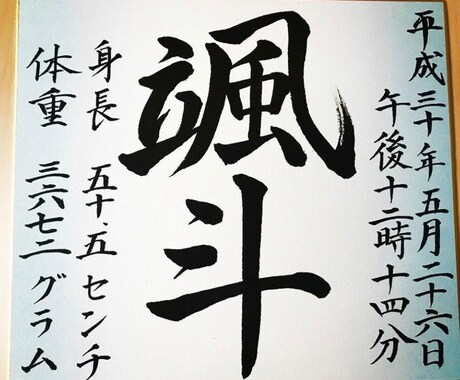 平成三十年五月二十六日
午後十二時十四分
颯斗
身長 五十.五センチ
体重 三六七二グラム